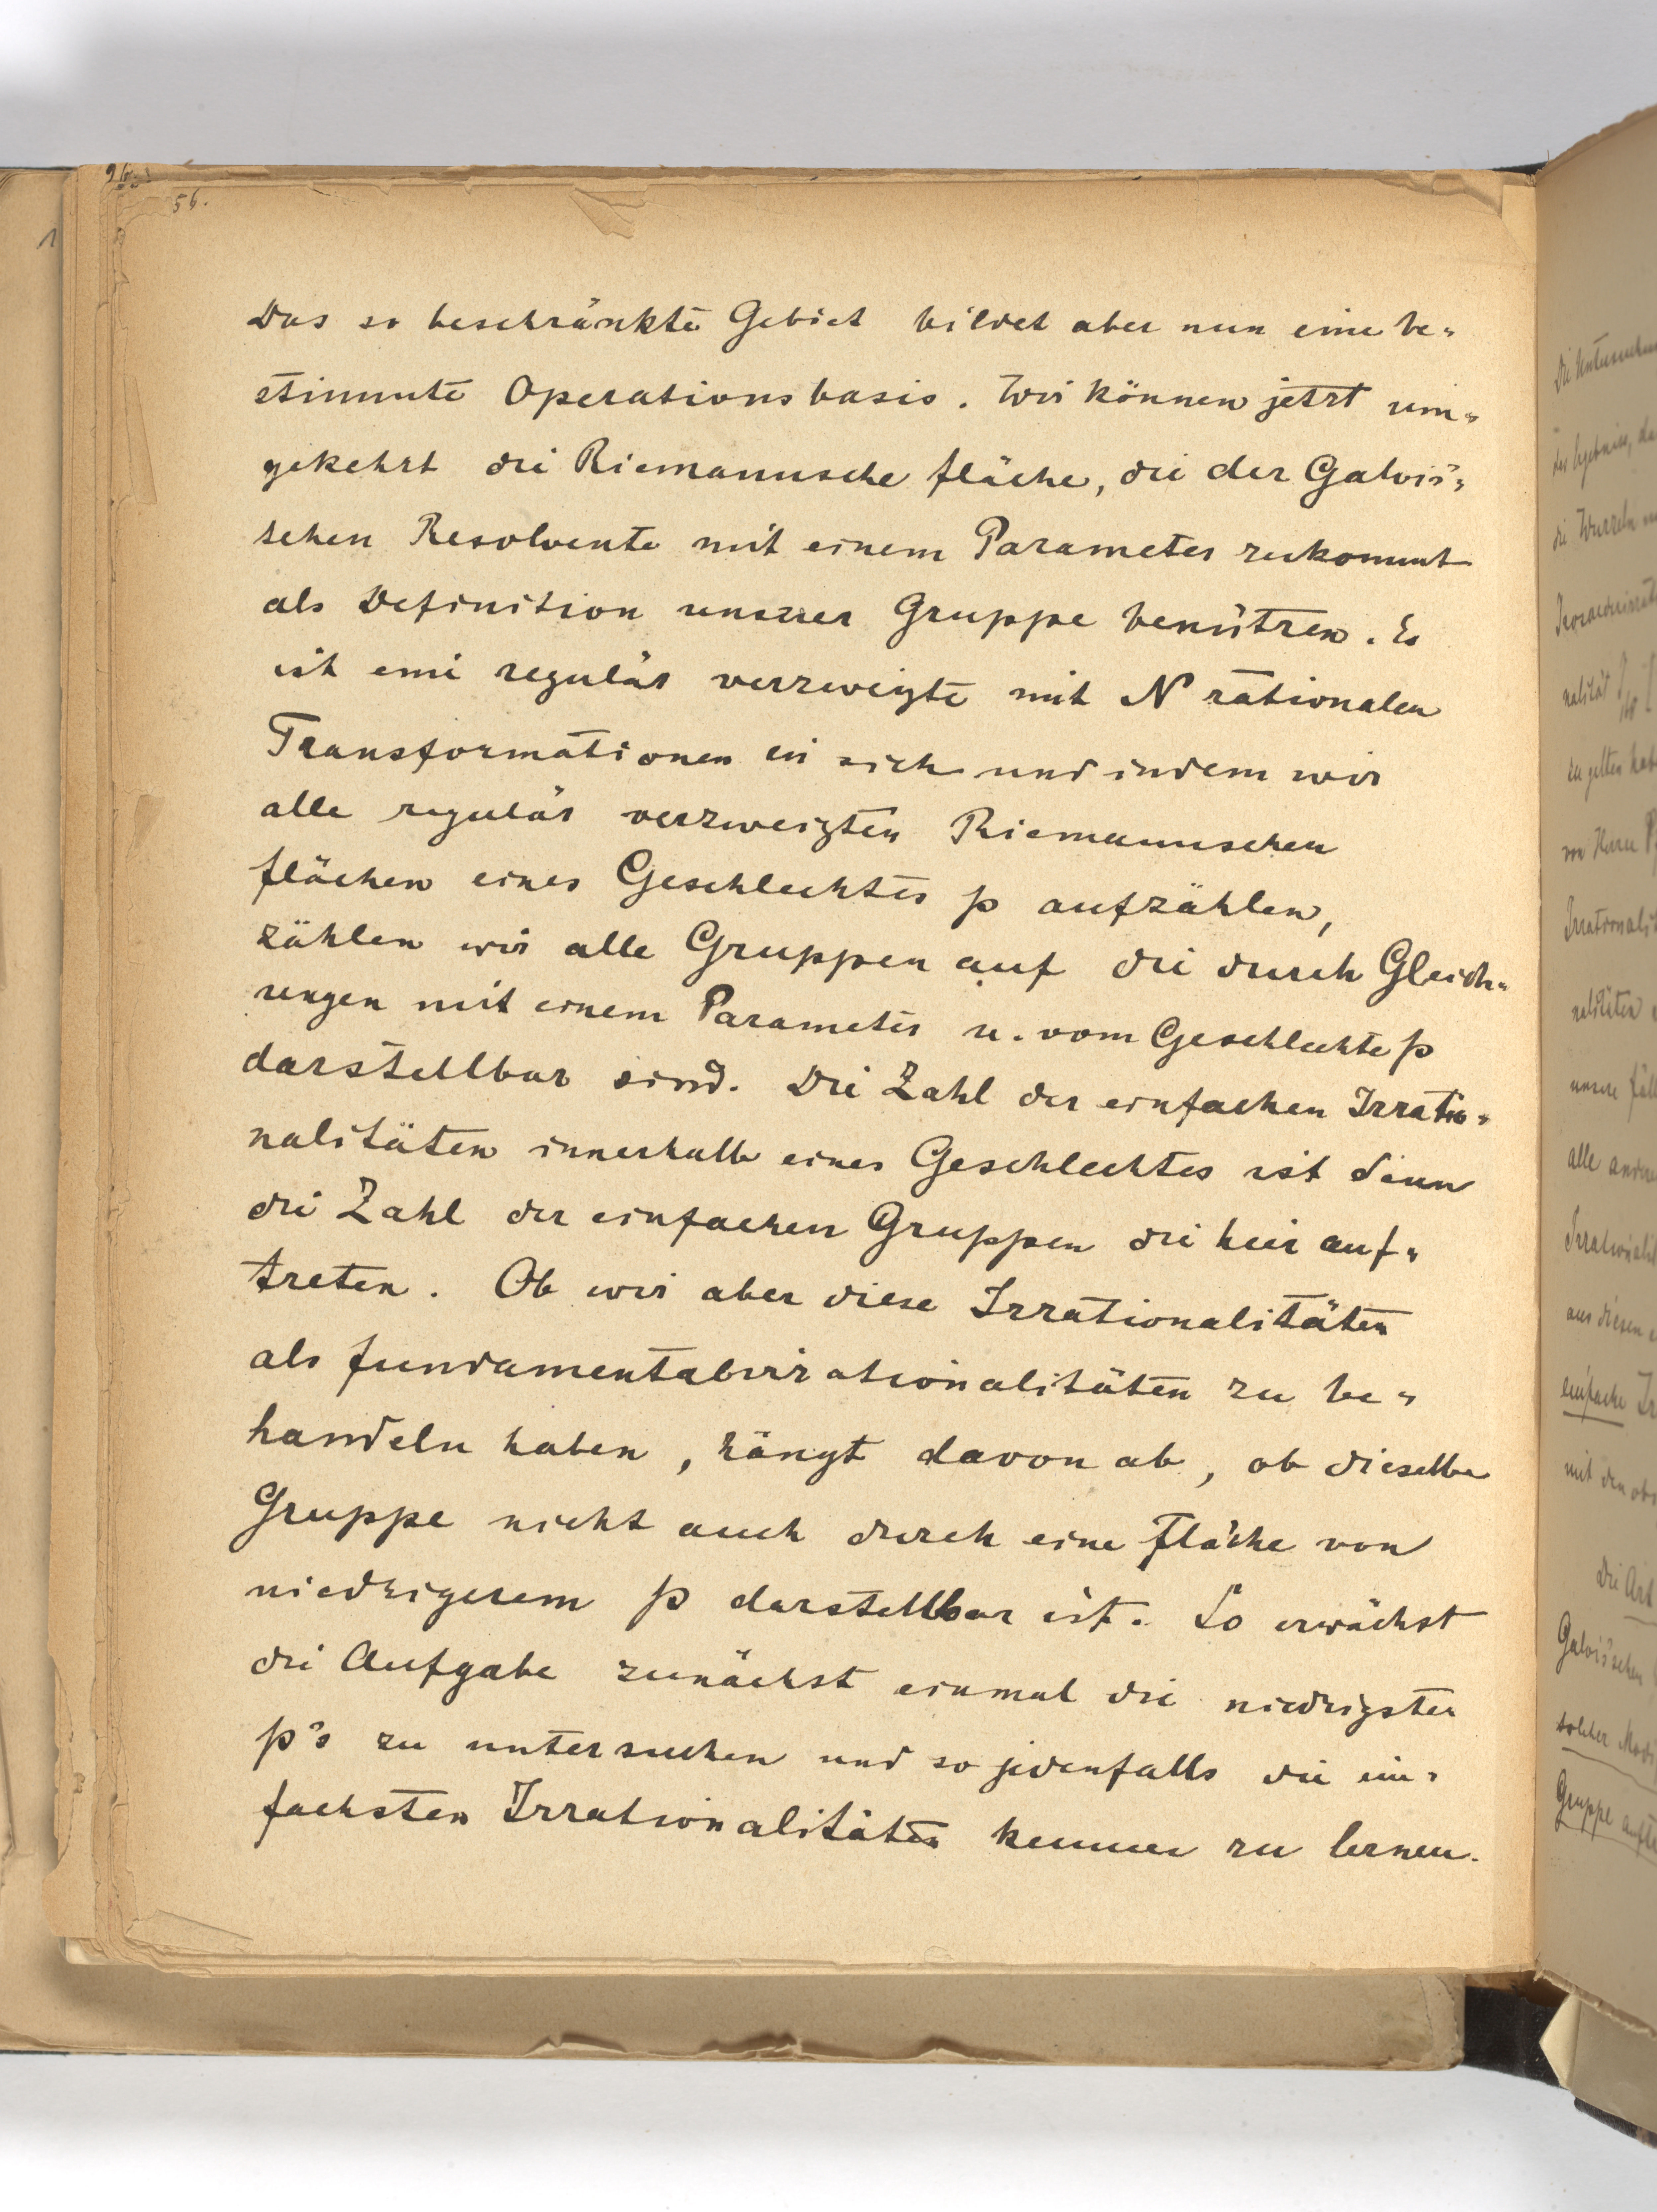 56.
Das so beschränkte Gebiet bildet aber nun eine be-
stimmte Operationsbasis. Wir können jetzt um-
gekehrt die Riemannsche Fläche, die der Galois'-
schen Resolvente mit einem Parameter zukommt
als Definition unserer Gruppe benützen. Es
ist eine regulär verzweigte mit N rationalen
Transformationen in sich und indem wir
alle regulär verzweigten Riemannschen
Flächen eines Geschlechtes p aufzählen,
zählen wir alle Gruppen auf die durch Gleich-
ungen mit einem Parameter u. vom Geschlechte p
darstellbar sind. Die Zahl der einfachen Irratio-
nalitäten innerhalb eines Geschlechtes ist dann
die Zahl der einfachen Gruppen die hier auf-
treten. Ob wir aber diese Irrationalitäten
als Fundamentalirrationalitäten zu be-
handeln haben, hängt davon ab, ob dieselbe
Gruppe nicht auch durch eine Fläche von
niedrigerem p darstellbar ist. So erwächst
die Aufgabe zunächst einmal die niedrigsten
p's zu untersuchen und so jedenfalls die ein-
fachsten Irrationalitäten kennen zu lernen.